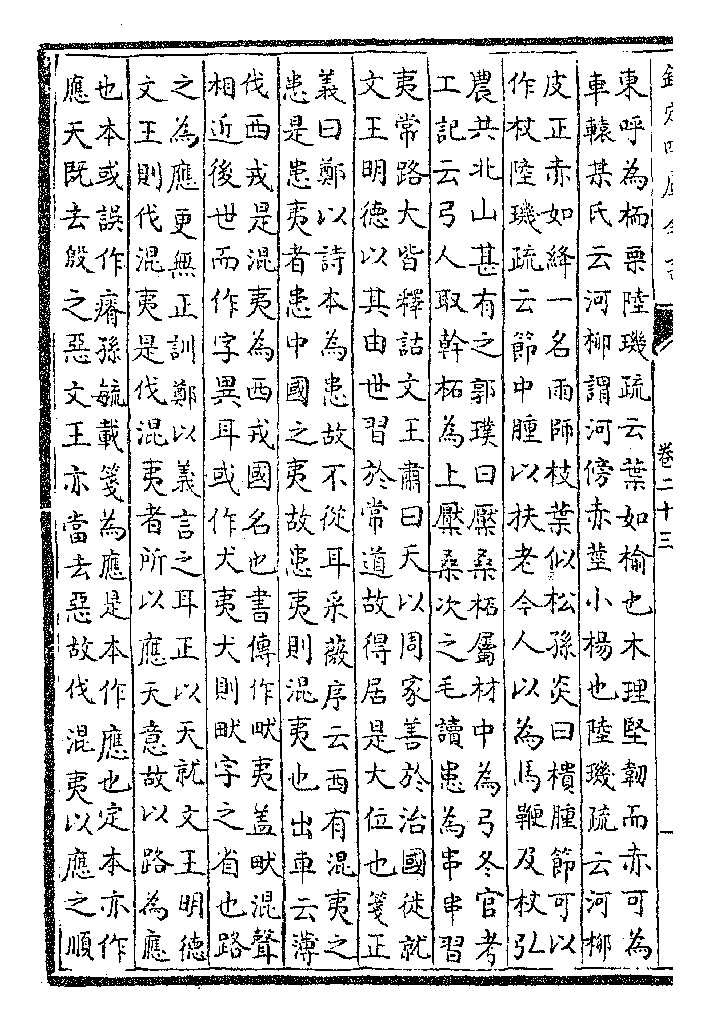 欽定四庫全書
卷二十三
一
東呼為栭栗陸璣疏云葉如榆也木理堅韌而赤可為
車轅某氏云河柳謂河傍赤莖小楊也陸璣疏云河柳
皮正赤如絳一名雨師枝葉似松孫炎曰樻腫節可以
作杖陸璣疏云節中腫以扶老今人以為馬鞭及杖弘
農共北山甚有之郭璞曰檿桑柘屬材中為弓冬官考
工記云弓人取幹柘為上檿桑次之毛讀患為串串習
夷常路大皆釋詁文王肅曰天以周家善於治國徙就
文王明德以其由世習於常道故得居是大位也箋正
義曰鄭以詩本為患故不從耳采薇序云西有混夷之
患是患夷者患中國之夷故患夷則混夷也出車云薄
伐西戎是混夷為西戎國名也書傳作畎夷盖畎混聲
相近後世而作字異耳或作犬夷犬則畎字之省也路
之為應更無正訓鄭以義言之耳正以天就文王明德
文王則伐混夷是伐混夷者所以應天意故以路為應
也本或誤作瘠孫毓載箋為應是本作應也定本亦作
應天既去殷之惡文王亦當去惡故伐混夷以應之順